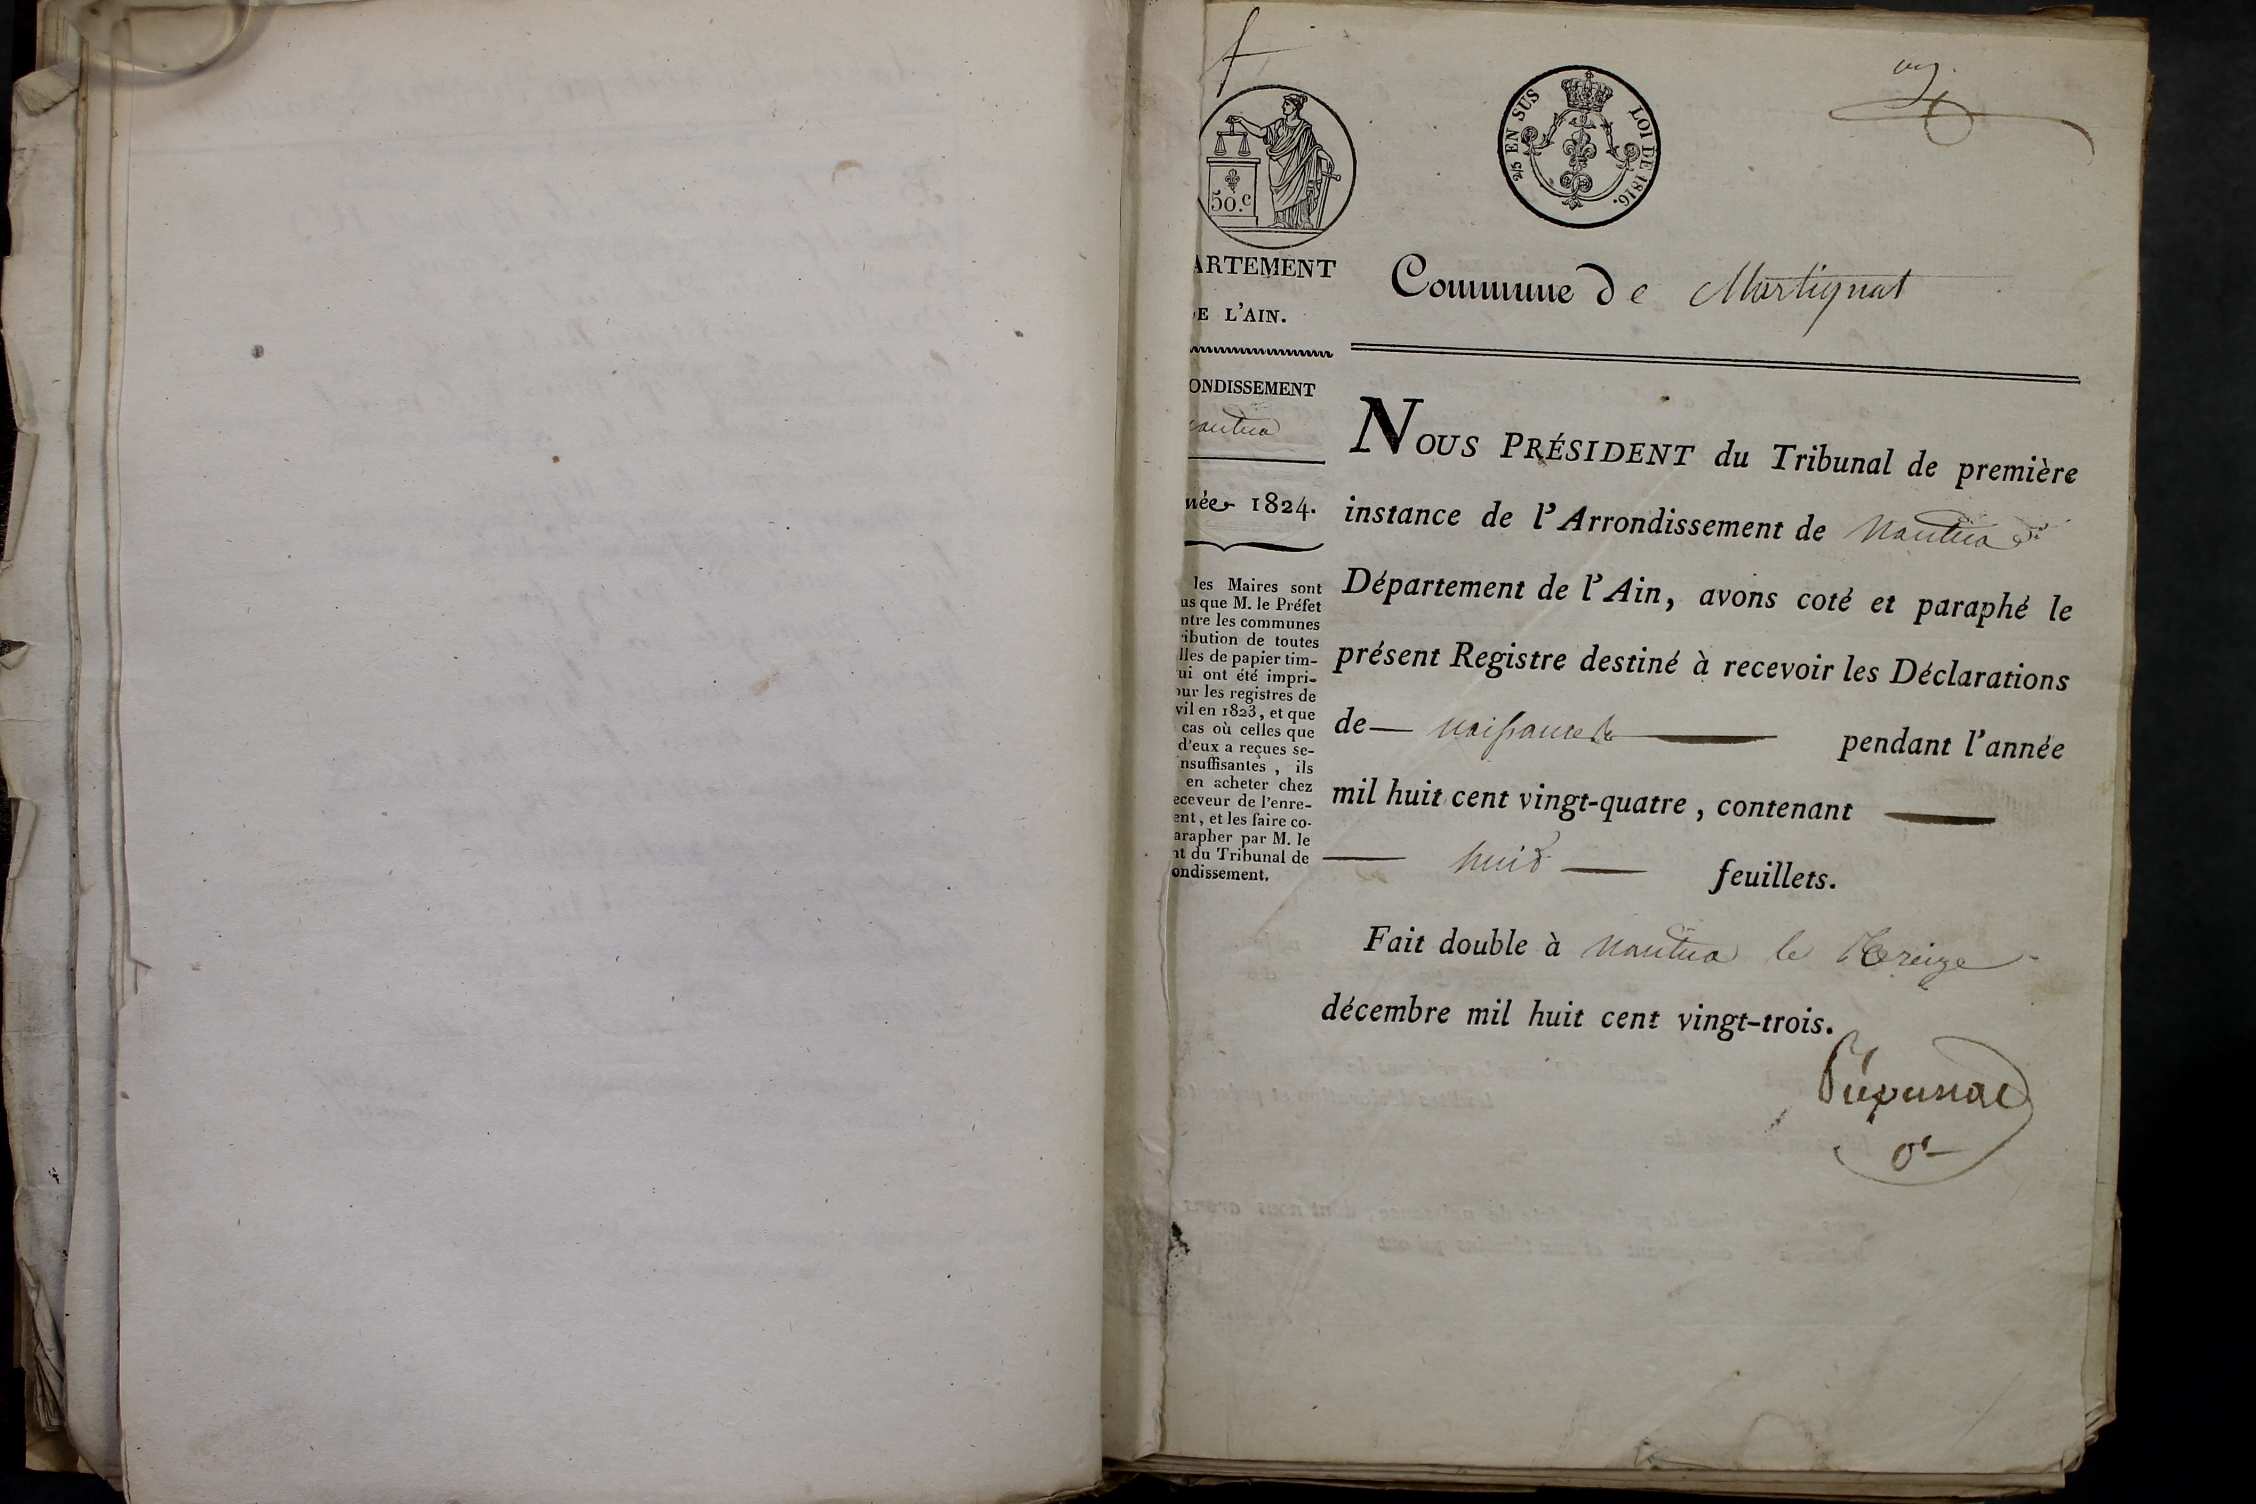 50.c
2/5 EN SUS LOI DE 1816.
ARTEMENT
E L'AIN.
ONDISSEMENT
antua
née 1824.
les Maires sont
us que M. le Préfet
ntre les communes
ribution de toutes
lles de papier tim-
ui ont été impri-
our les registres de
vil en 1823, et que
cas où celles que
d'eux a reçues se-
nsuffisantes, ils
en acheter chez
eceveur de l'enre-
ent, et les faire co-
arapher par M. le
nt du Tribunal de
ondissement.
Commune de Martignat
NOUS PRÉSIDENT du Tribunal de première
instance de l'Arrondissement de Nantua
Département de l'Ain, avons coté et paraphé le
présent Registre destiné à recevoir les Déclarations
de — naissances — pendant l'année
mil huit cent vingt-quatre, contenant —
— huit — feuillets.
Fait double à Nantua le treize
décembre mil huit cent vingt-trois.